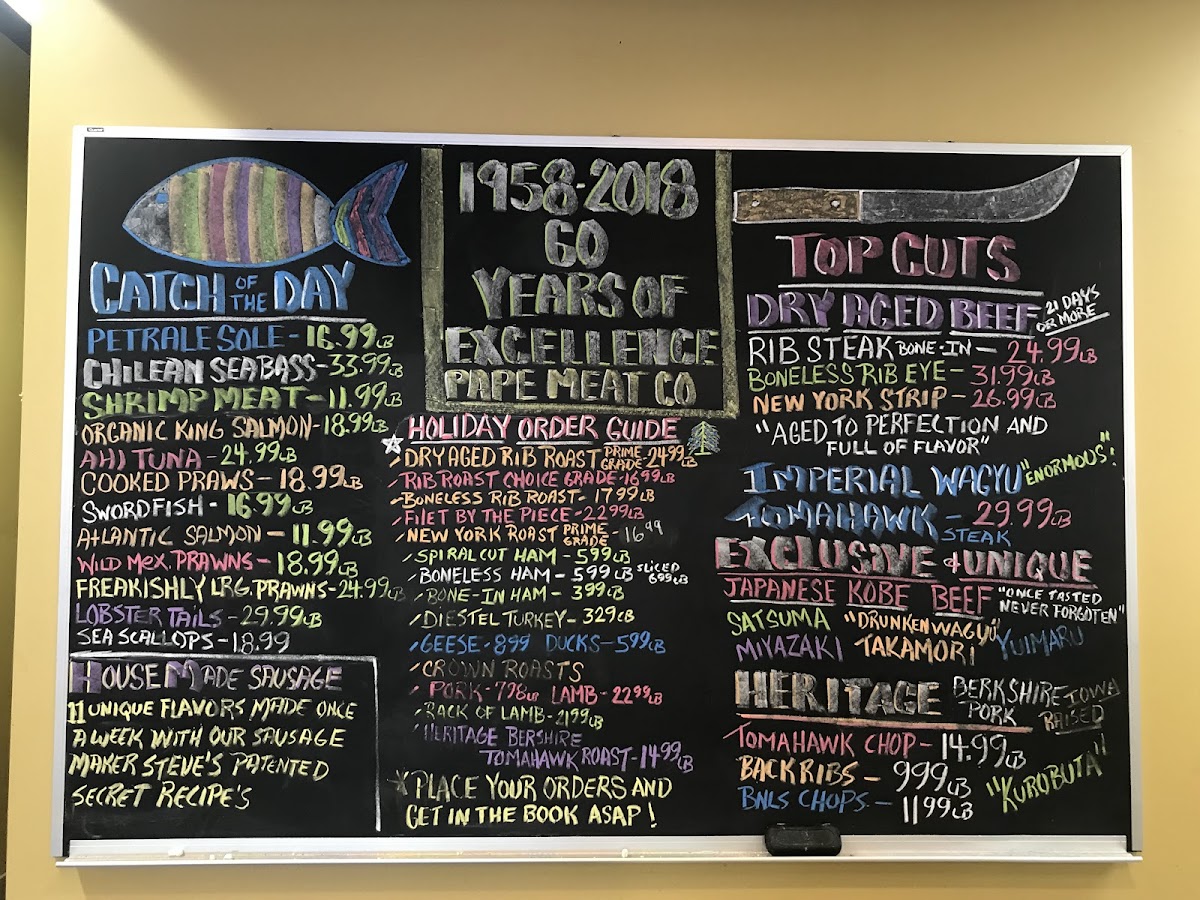 CATCH OF THE DAY
PETRALE SOLE - 16.99LB
CHILEAN SEABASS - 33.99LB
SHRIMP MEAT - 11.99LB
ORGANIC KING SALMON - 18.99LB
AHI TUNA - 24.99LB
COOKED PRAWS - 18.99LB
SWORDFISH - 16.99LB
ATLANTIC SALMON - 11.99LB
WILD MEX. PRAWNS - 18.99LB
FREAKISHLY LRG. PRAWNS - 24.99LB
LOBSTER TAILS - 29.99LB
SEA SCALLOPS - 18.99
HOUSE MADE SAUSAGE
11 UNIQUE FLAVORS MADE ONCE
A WEEK WITH OUR SAUSAGE
MAKER STEVE'S PATENTED
SECRET RECIPE'S
1958-2018
60
YEARS OF
EXCELLENCE
PAPE MEAT CO
HOLIDAY ORDER GUIDE
DRY AGED RIB ROAST PRIME GRADE - 24.99LB
RIB ROAST CHOICE GRADE - 16.99LB
BONELESS RIB ROAST - 17.99LB
FILET BY THE PIECE - 22.99LB
NEW YORK ROAST PRIME GRADE - 16.99
SPIRAL CUT HAM - 5.99LB
BONELESS HAM - 5.99LB SLICED 6.99LB
BONE-IN HAM - 3.99LB
DIESTEL TURKEY - 3.29LB
GEESE - 8.99 DUCKS - 5.99LB
CROWN ROASTS
PORK - 7.98LB LAMB - 22.99LB
RACK OF LAMB - 21.99LB
HERITAGE BERSHIRE
TOMAHAWK ROAST - 14.99LB
* PLACE YOUR ORDERS AND
GET IN THE BOOK ASAP!
TOP CUTS
DRY AGED BEEF 21 DAYS OR MORE
RIB STEAK BONE-IN - 24.99LB
BONELESS RIB EYE - 31.99LB
NEW YORK STRIP - 26.99LB
"AGED TO PERFECTION AND
FULL OF FLAVOR"
IMPERIAL WAGYU "ENORMOUS!"
TOMAHAWK STEAK - 29.99LB
EXCLUSIVE & UNIQUE
JAPANESE KOBE BEEF "ONCE TASTED NEVER FORGOTEN"
SATSUMA "DRUNKEN WAGYU" YUIMARU
MIYAZAKI TAKAMORI
HERITAGE BERKSHIRE PORK IOWA RAISED
TOMAHAWK CHOP - 14.99LB
BACK RIBS - 9.99LB "KUROBUTA"
BNLS CHOPS - 11.99LB